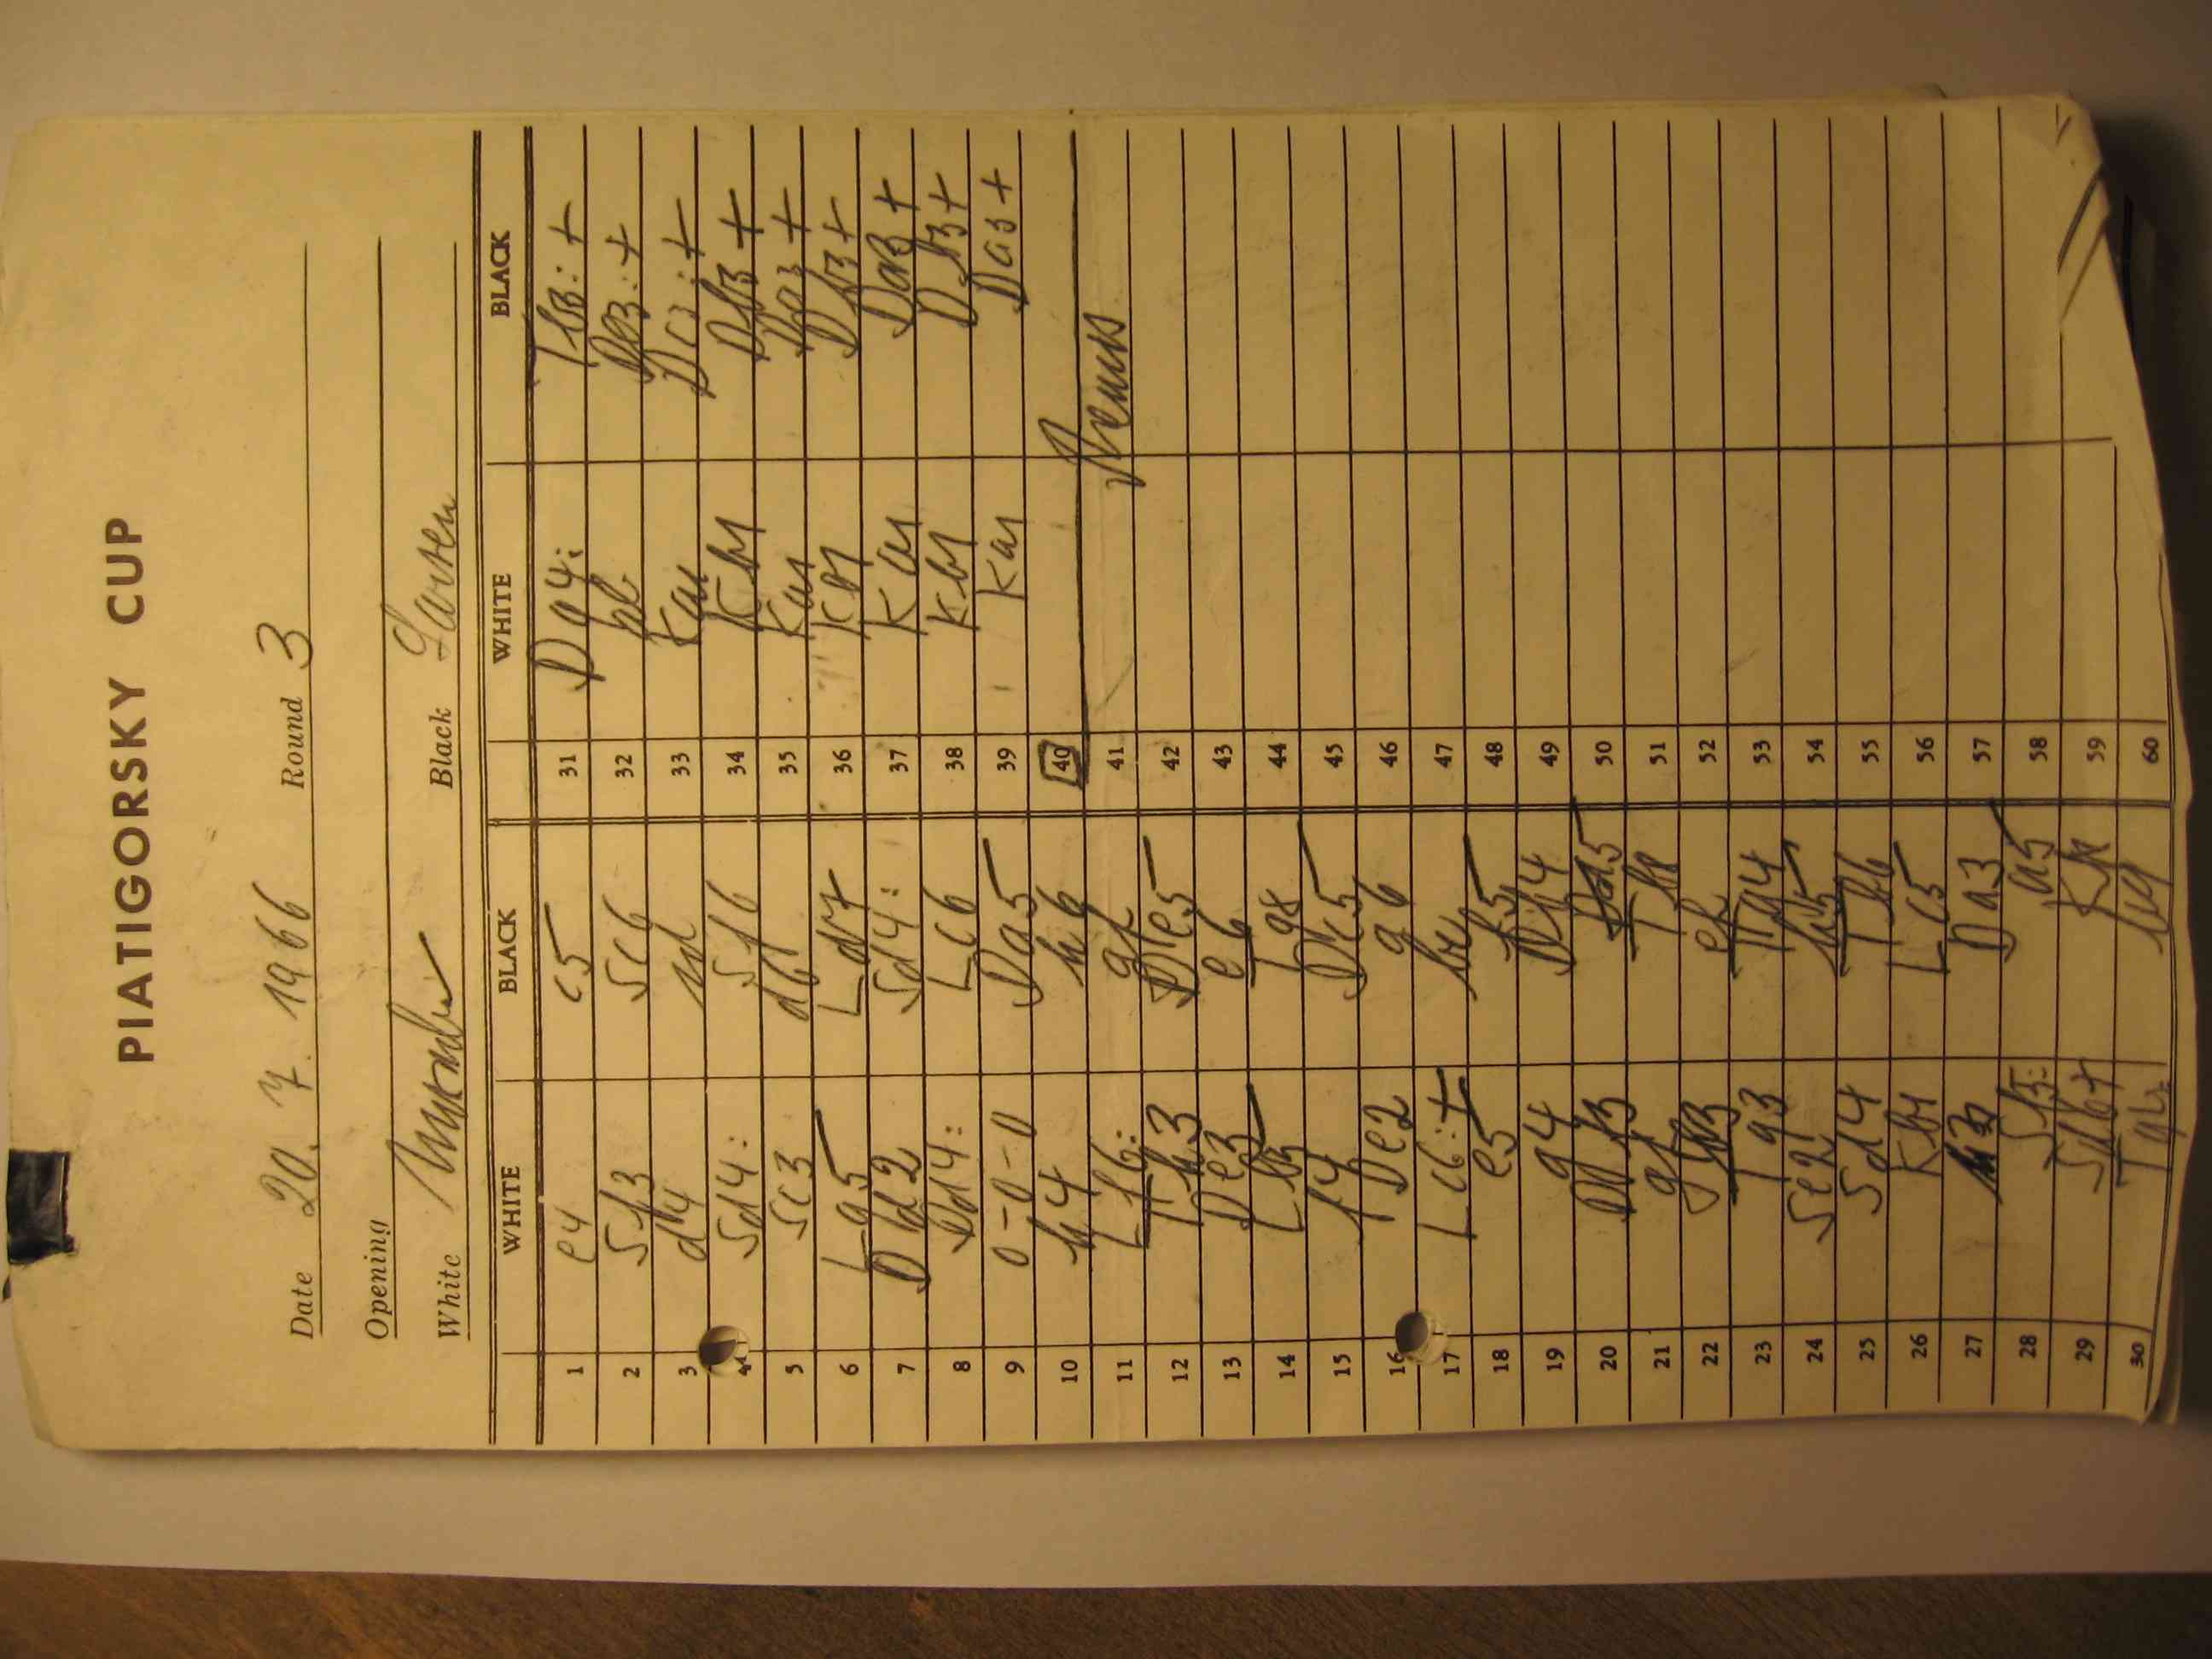 PIATIGORSKY CUP
Date 20. 7. 1966 Round 3
Opening
White Black Larsen
WHITE BLACK WHITE BLACK
1 e4 c5 31 Da4: Tb3:+
2 Sf3 Sc6 32 Db3:+
3 d4 cd 33 Ka1 Dc3:+
4 Sd4: Sf6 34 Kb1 Db3+
5 Sc3 d6 35 Ka1 Da3+
6 Lg5 Ld7 36 Kb1 Db3+
7 Dd2 Sd4: 37 Ka1 Da3+
8 Dd4: Lc6 38 Kb1 Db3+
9 0-0-0 Da5 39 Ka1 Da3+
10 h4 h6 40
11 Lf6: gf 41 Remis
12 Th3 De5 42
13 De3 e6 43
14 Lb5 Tg8 44
15 f4 Dc5 45
16 De2 a6 46
17 Lc6:+ bc 47
18 e5 f5 48
19 g4 Df4 49
20 Df3 Da5 50
21 gf Tb8 51
22 ef 52
23 Tg3 Tg4 53
24 Se2 h5 54
25 Sd4 Tb6 55
26 Kb1 Lc5 56
27 Da3 57
28 Sf5: a5 58
29 Sd6+ Kf8 59
30 Tg4: hg 60